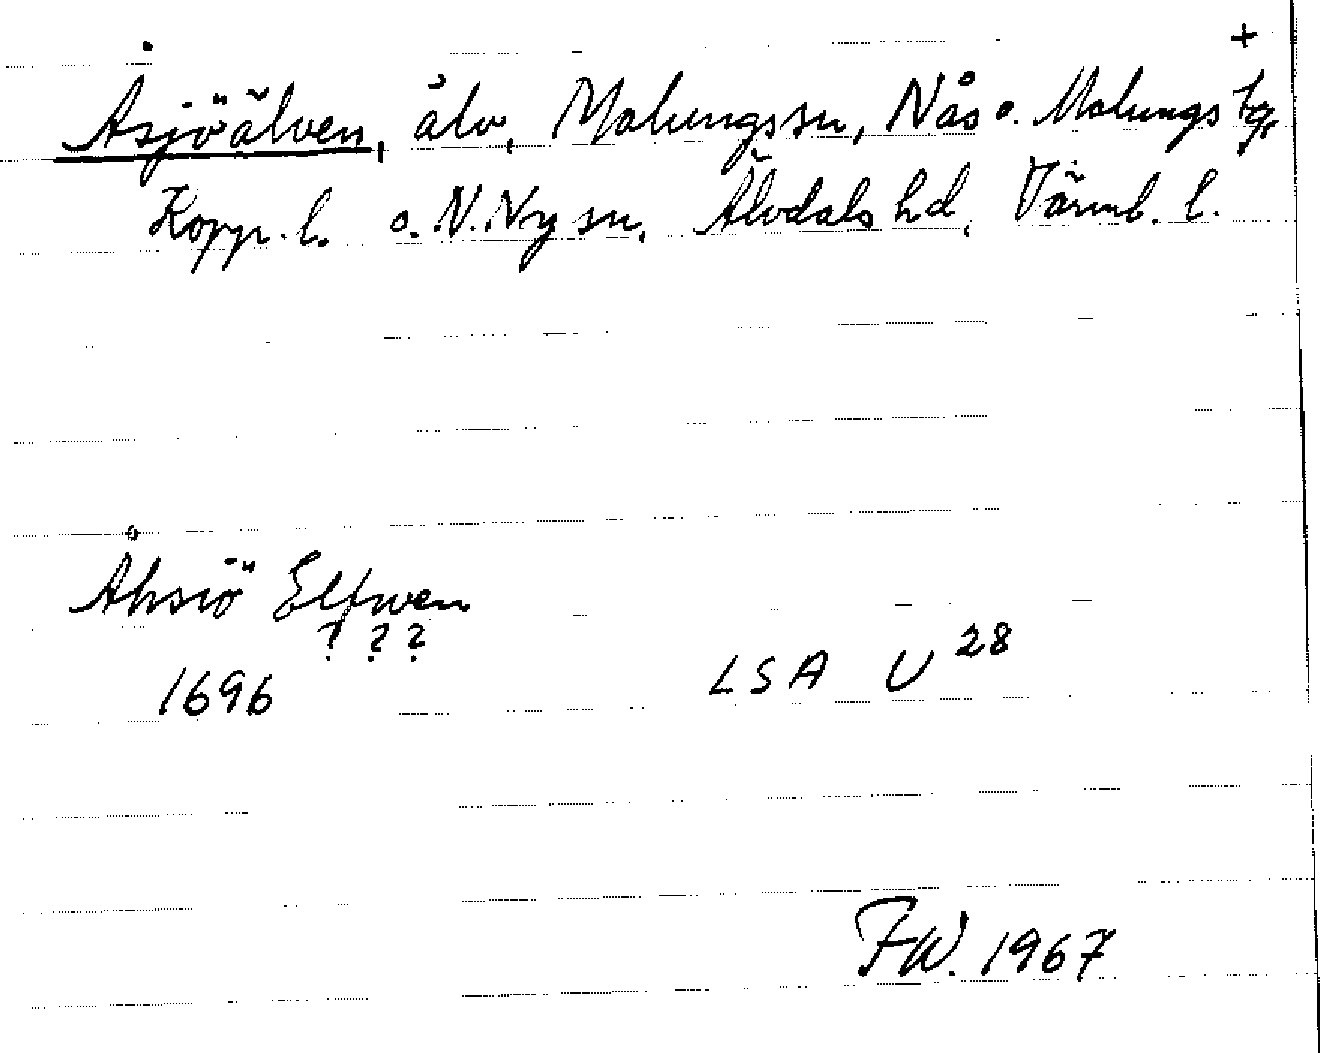 +
Åsjöälven, älv, Malungs sn, Nås o. Malungs tgr
Kopp. l. o. N. Ny sn, Älvdals hd, Värml. l.
Åhsiö Elfwen
? ? ?
1696 LSA U 28
FW. 1967